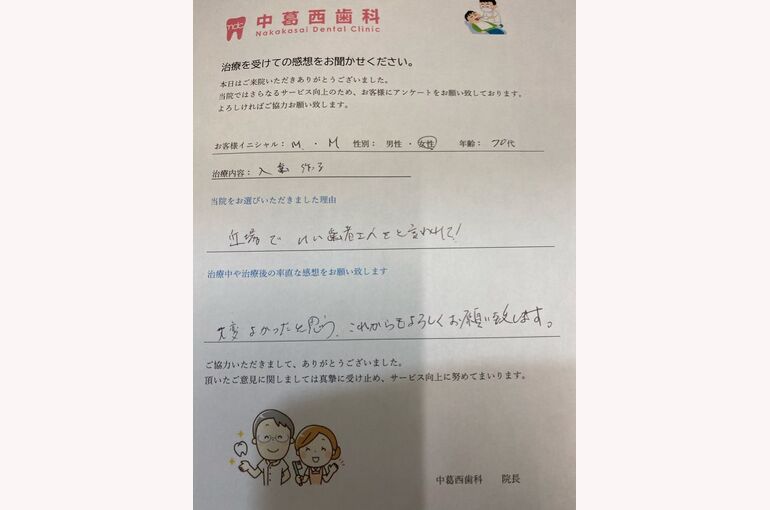 ndc
中葛西歯科
Nakakasai Dental Clinic
治療を受けての感想をお聞かせください。
本日はご来院いただきありがとうございました。
当院ではさらなるサービス向上のため、お客様にアンケートをお願い致しております。
よろしければご協力お願い致します。
お客様イニシャル： M ・ M 性別： 男性 ・ 女性 年齢： 70代
治療内容： 入歯
当院をお選びいただきました理由
近場で いい歯者さんをと言われて!
治療中や治療後の率直な感想をお願い致します
大変よかったと思う、これからもよろしくお願い致します。
ご協力いただきまして、ありがとうございました。
頂いたご意見に関しましては真摯に受け止め、サービス向上に努めてまいります。
中葛西歯科 院長